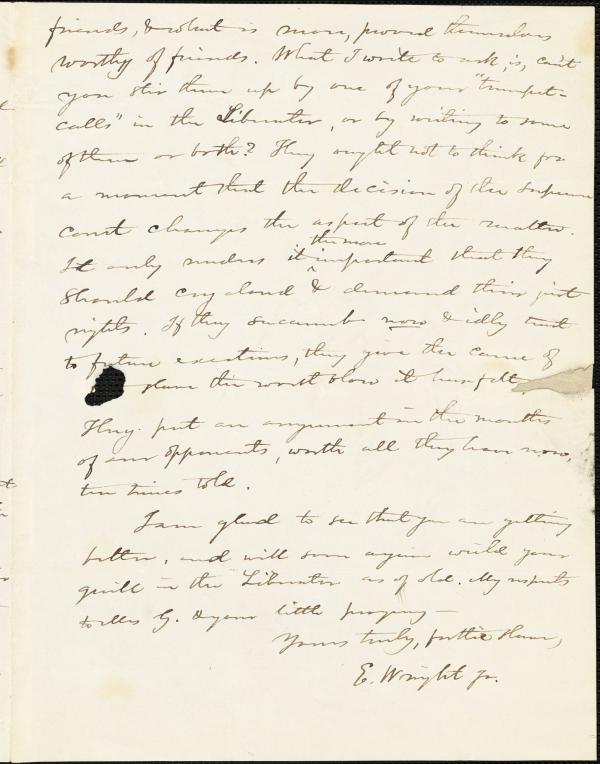 friends, & what is more, proved themselves
worthy of friends. What I write to ask, is, can't
you stir them up by one of your "trumpet-
calls" in the Liberator, or by writing to some
of them or both? They ought not to think for
a moment that the decision of the Supreme
court changes the aspect of the matter.
the more
It only renders it ^ important that they
should cry aloud & demand their just
rights. If they succumb now & idly trust
to future exertions, they give the cause of
the slave the worst blow it has felt.
They put an argument in the mouths
of our opponents, worth all they have now,
ten times told.
I am glad to see that you are getting
better, and will soon again wield your
quill in the Liberator as of old. My respects
to Mrs G. & your little progeny —
Yours truly, for the slave,
E. Wright Jr.